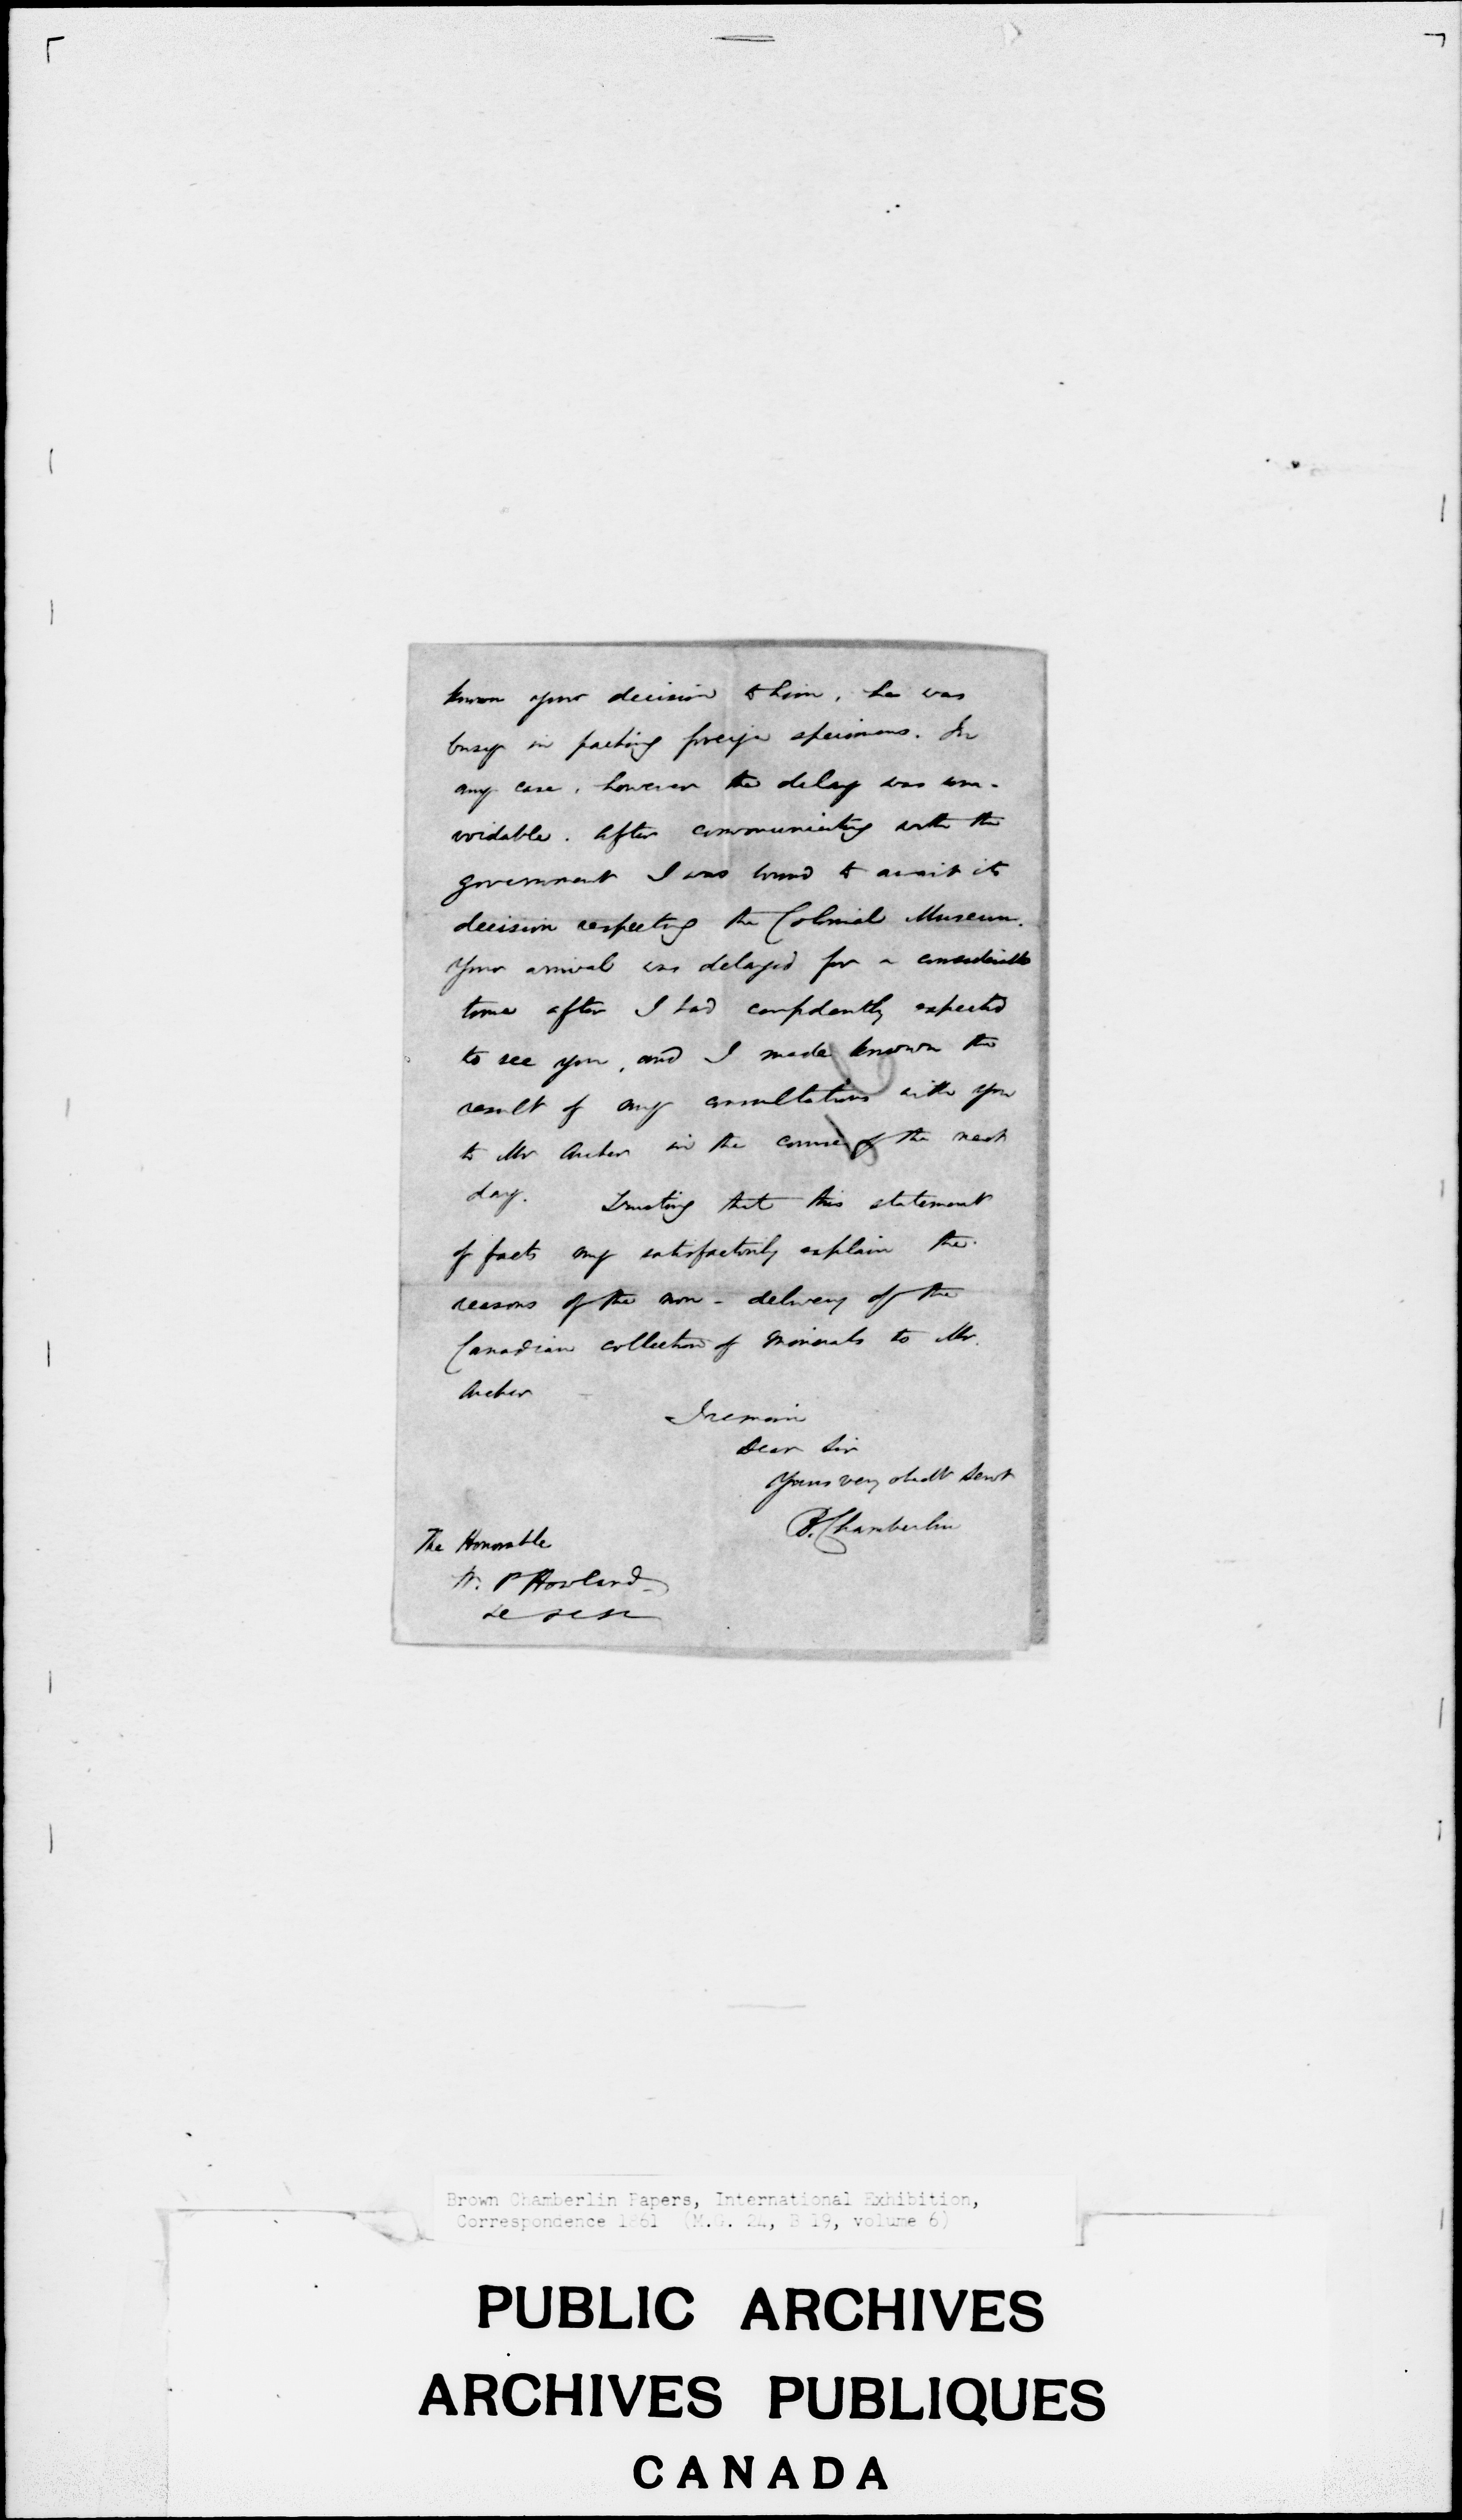 known your decision to him, he was
busy in packing foreign specimens. In
any case, however the delay was una-
voidable. After communicating with the
government I was bound to await its
decision respecting the Colonial Museum.
Your arrival was delayed for a considerable
time after I had confidently expected
to see you, and I made known the
result of my consultations with you
to Mr Archer in the course of the next
day. Trusting that this statement
of facts may satisfactorily explain the
reasons of the non-delivery of the
Canadian collection of minerals to Mr.
Archer
I remain
Dear Sir
Yours very obedt Servt
B. Chamberlin
The Honorable
W. P Howland
Brown Chamberlin Papers, International Exhibition,
Correspondence 1861 (M.G. 24, B 19, volume 6)
PUBLIC ARCHIVES
ARCHIVES PUBLIQUES
CANADA